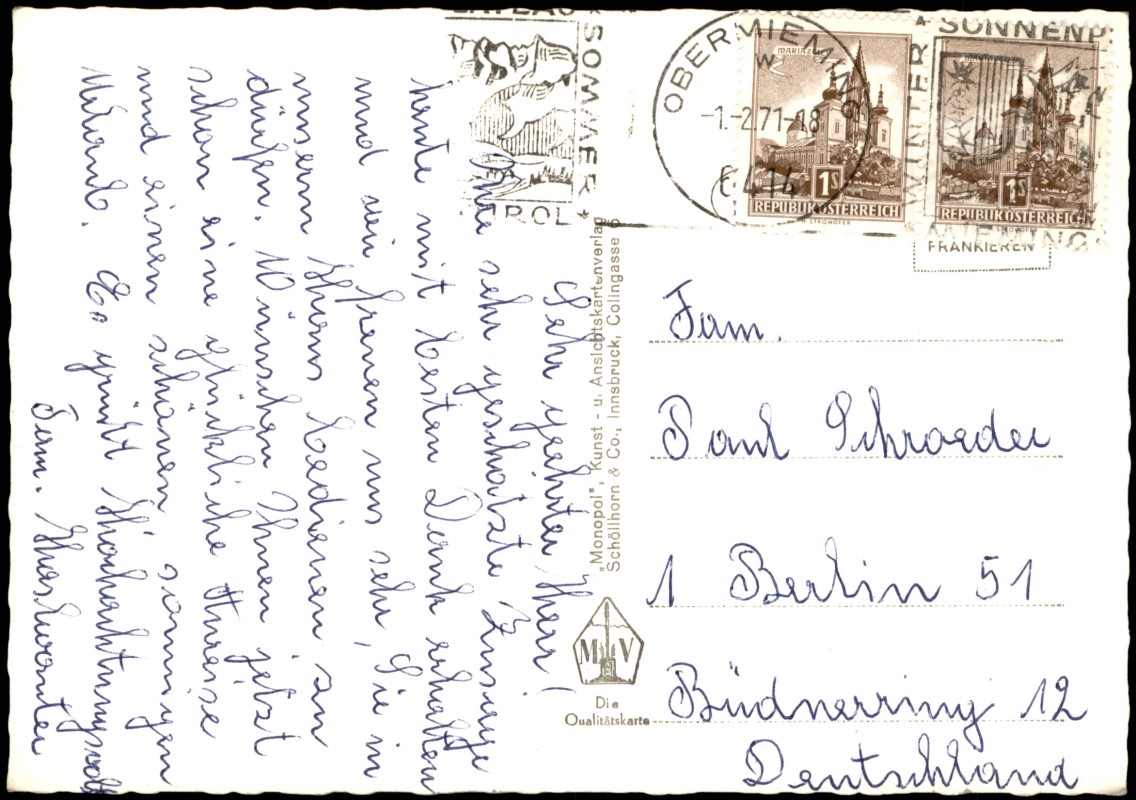 Sehr geehrter Herr!
Ihre sehr geschätzte Zusage
heute mit besten Dank erhalten
und wir freuen uns sehr, Sie in
unserm Haus bedienen zu
dürfen. Wünschen Ihnen jetzt
schon eine glückliche Anreise
und einen schönen sonnigen
Urlaub. Es grüßt Hochachtungsvoll
Fam.
"Monopol", Kunst - u. Ansichtskartenverlag
Schöllhorn & Co., Innsbruck, Colingasse 6
M V
Die
Qualitätskarte
SOMMER *
TIROL *
OBERMIEMING
-1.-2.71-18
6414
WINTER *
SONNENP
MIEMING
MARIAZELL
1S
REPUBLIK ÖSTERREICH
1S
REPUBLIK ÖSTERREICH
FRANKIEREN
Fam.
Paul Schroeder
1 Berlin 51
Büdnerring 12
Deutschland